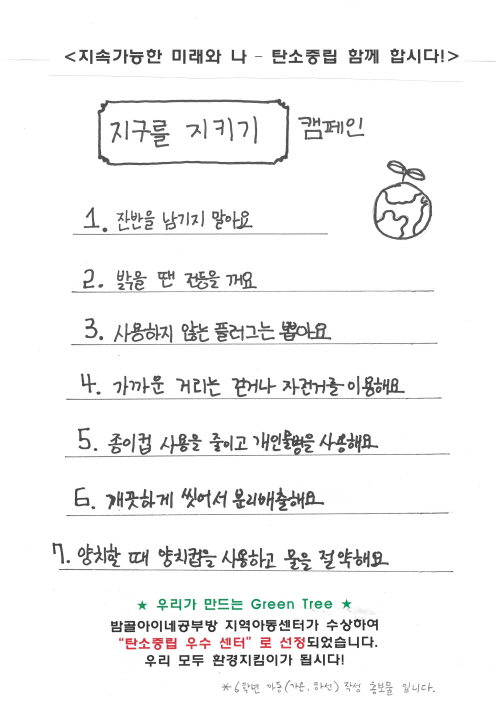 <지속가능한 미래와 나 - 탄소중립 함께 합시다!>
지구를 지키기 캠페인
1. 잔반을 남기지 말아요
2. 밝을 땐 전등을 꺼요
3. 사용하지 않는 플러그는 뽑아요
4. 가까운 거리는 걷거나 자전거를 이용해요
5. 종이컵 사용을 줄이고 개인물병을 사용해요
6. 깨끗하게 씻어서 분리배출해요
7. 양치할 때 양치컵을 사용하고 물을 절약해요
★ 우리가 만드는 Green Tree ★
밤골아이네공부방 지역아동센터가 수상하여
"탄소중립 우수 센터" 로 선정되었습니다.
우리 모두 환경지킴이가 됩시다!
*6학년 아동(가은, 하선) 작성 홍보물 입니다.